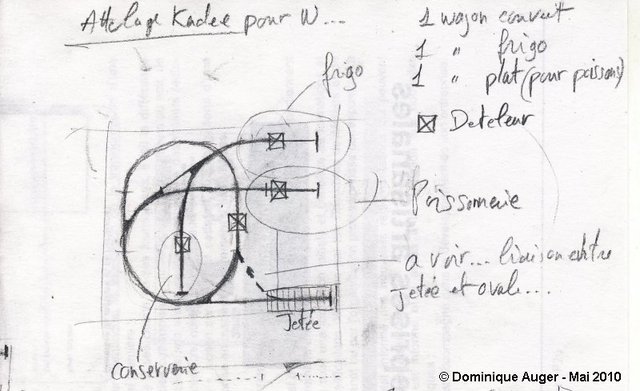 Attelage Kadee pour N...
1 wagon couvert
1 " frigo
1 " plat (pour poissons)
Dételeur
frigo
Poissonnerie
a voir... liaison entre
Jetée et ovale...
Jetée
conserverie
© Dominique Auger - Mai 2010